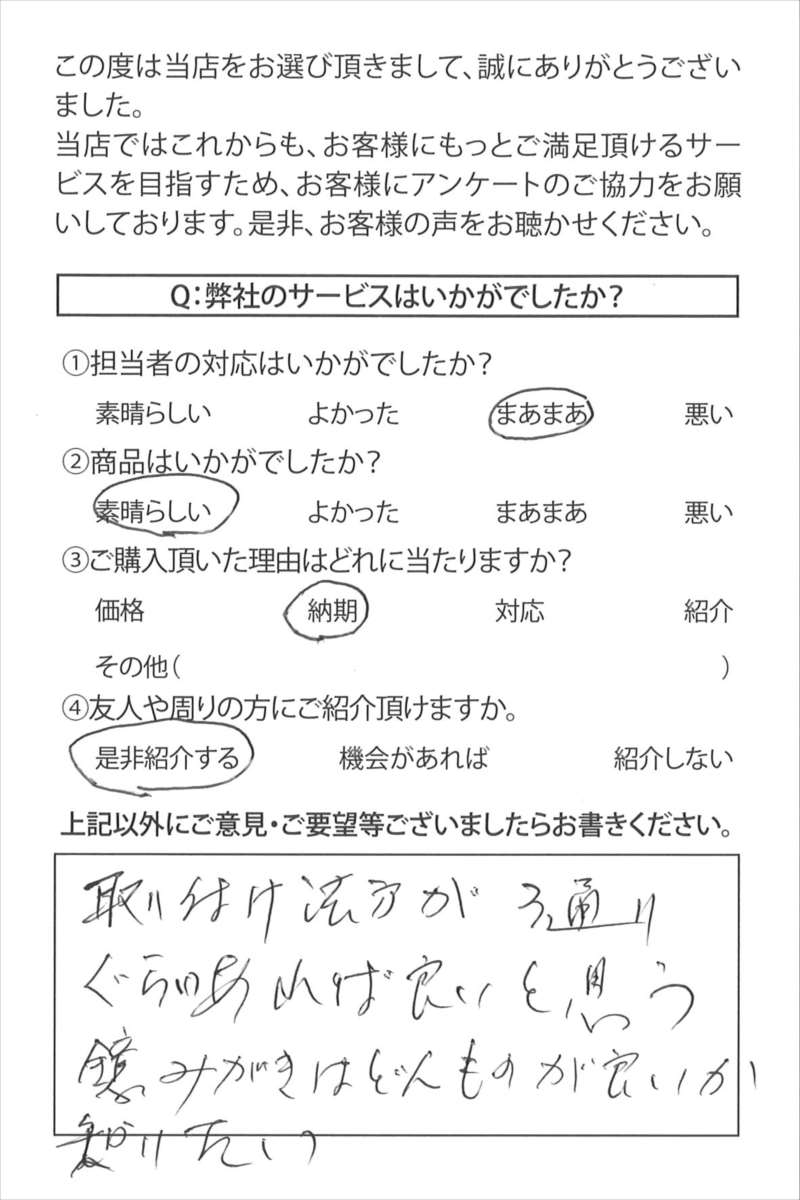 この度は当店をお選び頂きまして、誠にありがとうござい
ました。
当店ではこれからも、お客様にもっとご満足頂けるサー
ビスを目指すため、お客様にアンケートのご協力をお願
いしております。是非、お客様の声をお聴かせください。
Q:弊社のサービスはいかがでしたか?
①担当者の対応はいかがでしたか?
素晴らしい よかった まあまあ 悪い
②商品はいかがでしたか?
素晴らしい よかった まあまあ 悪い
③ご購入頂いた理由はどれに当たりますか?
価格 納期 対応 紹介
その他( )
④友人や周りの方にご紹介頂けますか。
是非紹介する 機会があれば 紹介しない
上記以外にご意見・ご要望等ございましたらお書きください。
取り付け法方が 3通り
ぐらいあれば良いと思う
鏡みがきはどんものが良いか
知りたい